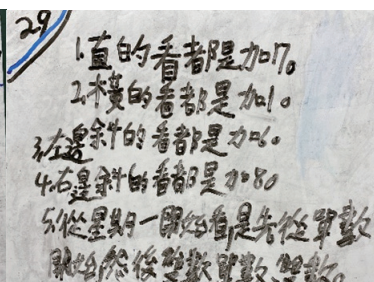 29
1.直的看都是加7。
2.横的看都是加1。
3.左邊斜的看都是加6。
4.右邊斜的看都是加8。
5.從星期一開始看,是先從單數
開始,然後雙數、單數、雙數。